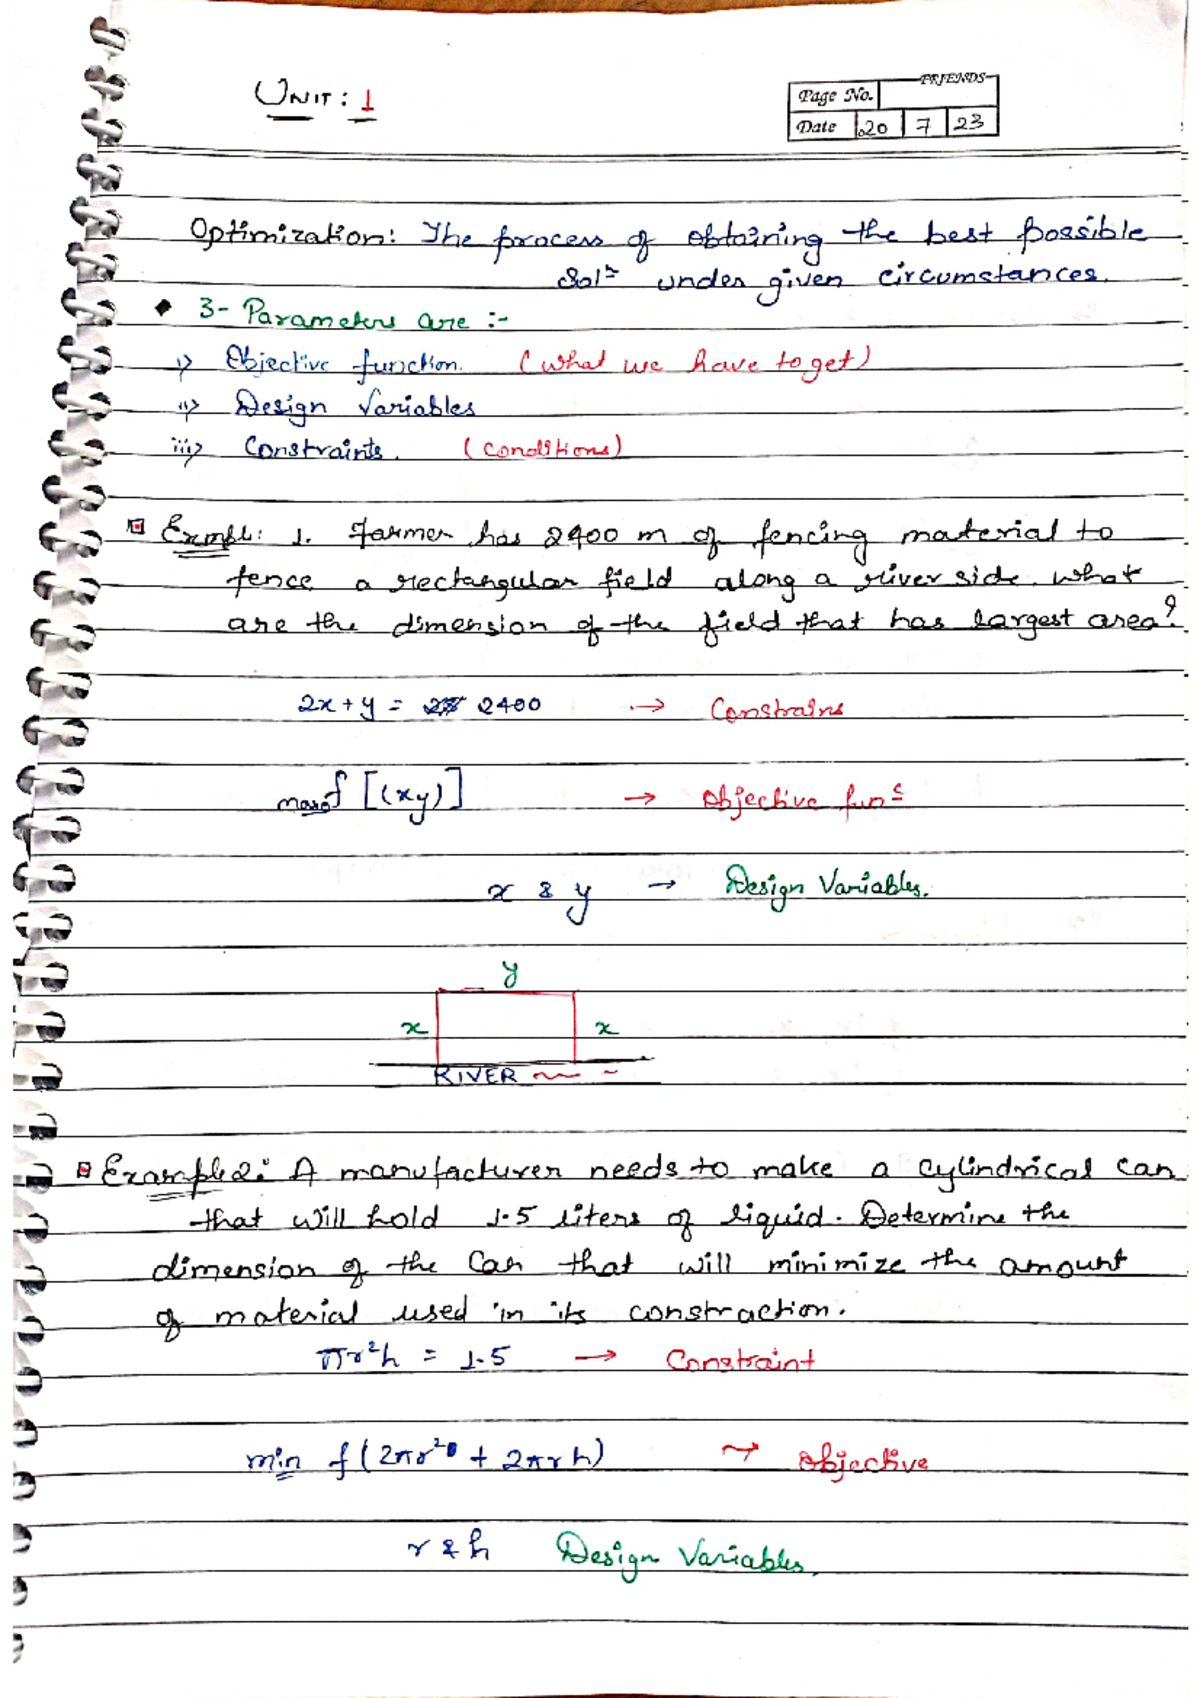 UNIT: 1
FRIENDS
Page No.
Date 20 7 23
Optimization: The process of obtaining the best possible
solⁿ under given circumstances.
3- Parameters are :-
i) Objective function. (what we have to get)
ii) Design Variables
iii) Constraints. (conditions)
Exmpl: 1. Farmer has 2400 m of fencing material to
fence a rectangular field along a river side. What
are the dimension of the field that has largest area?
2x + y = 2400 → Constrains
max f [(xy)] → Objective funᶜ
x & y → Design Variables.
y
x x
RIVER
Example 2: A manufacturer needs to make a cylindrical can
that will hold 1.5 liters of liquid. Determine the
dimension of the Can that will minimize the amount
of material used in its constraction.
πr²h = 1.5 → Constraint
min f(2πr² + 2πrh) → Objective
r & h Design Variables.